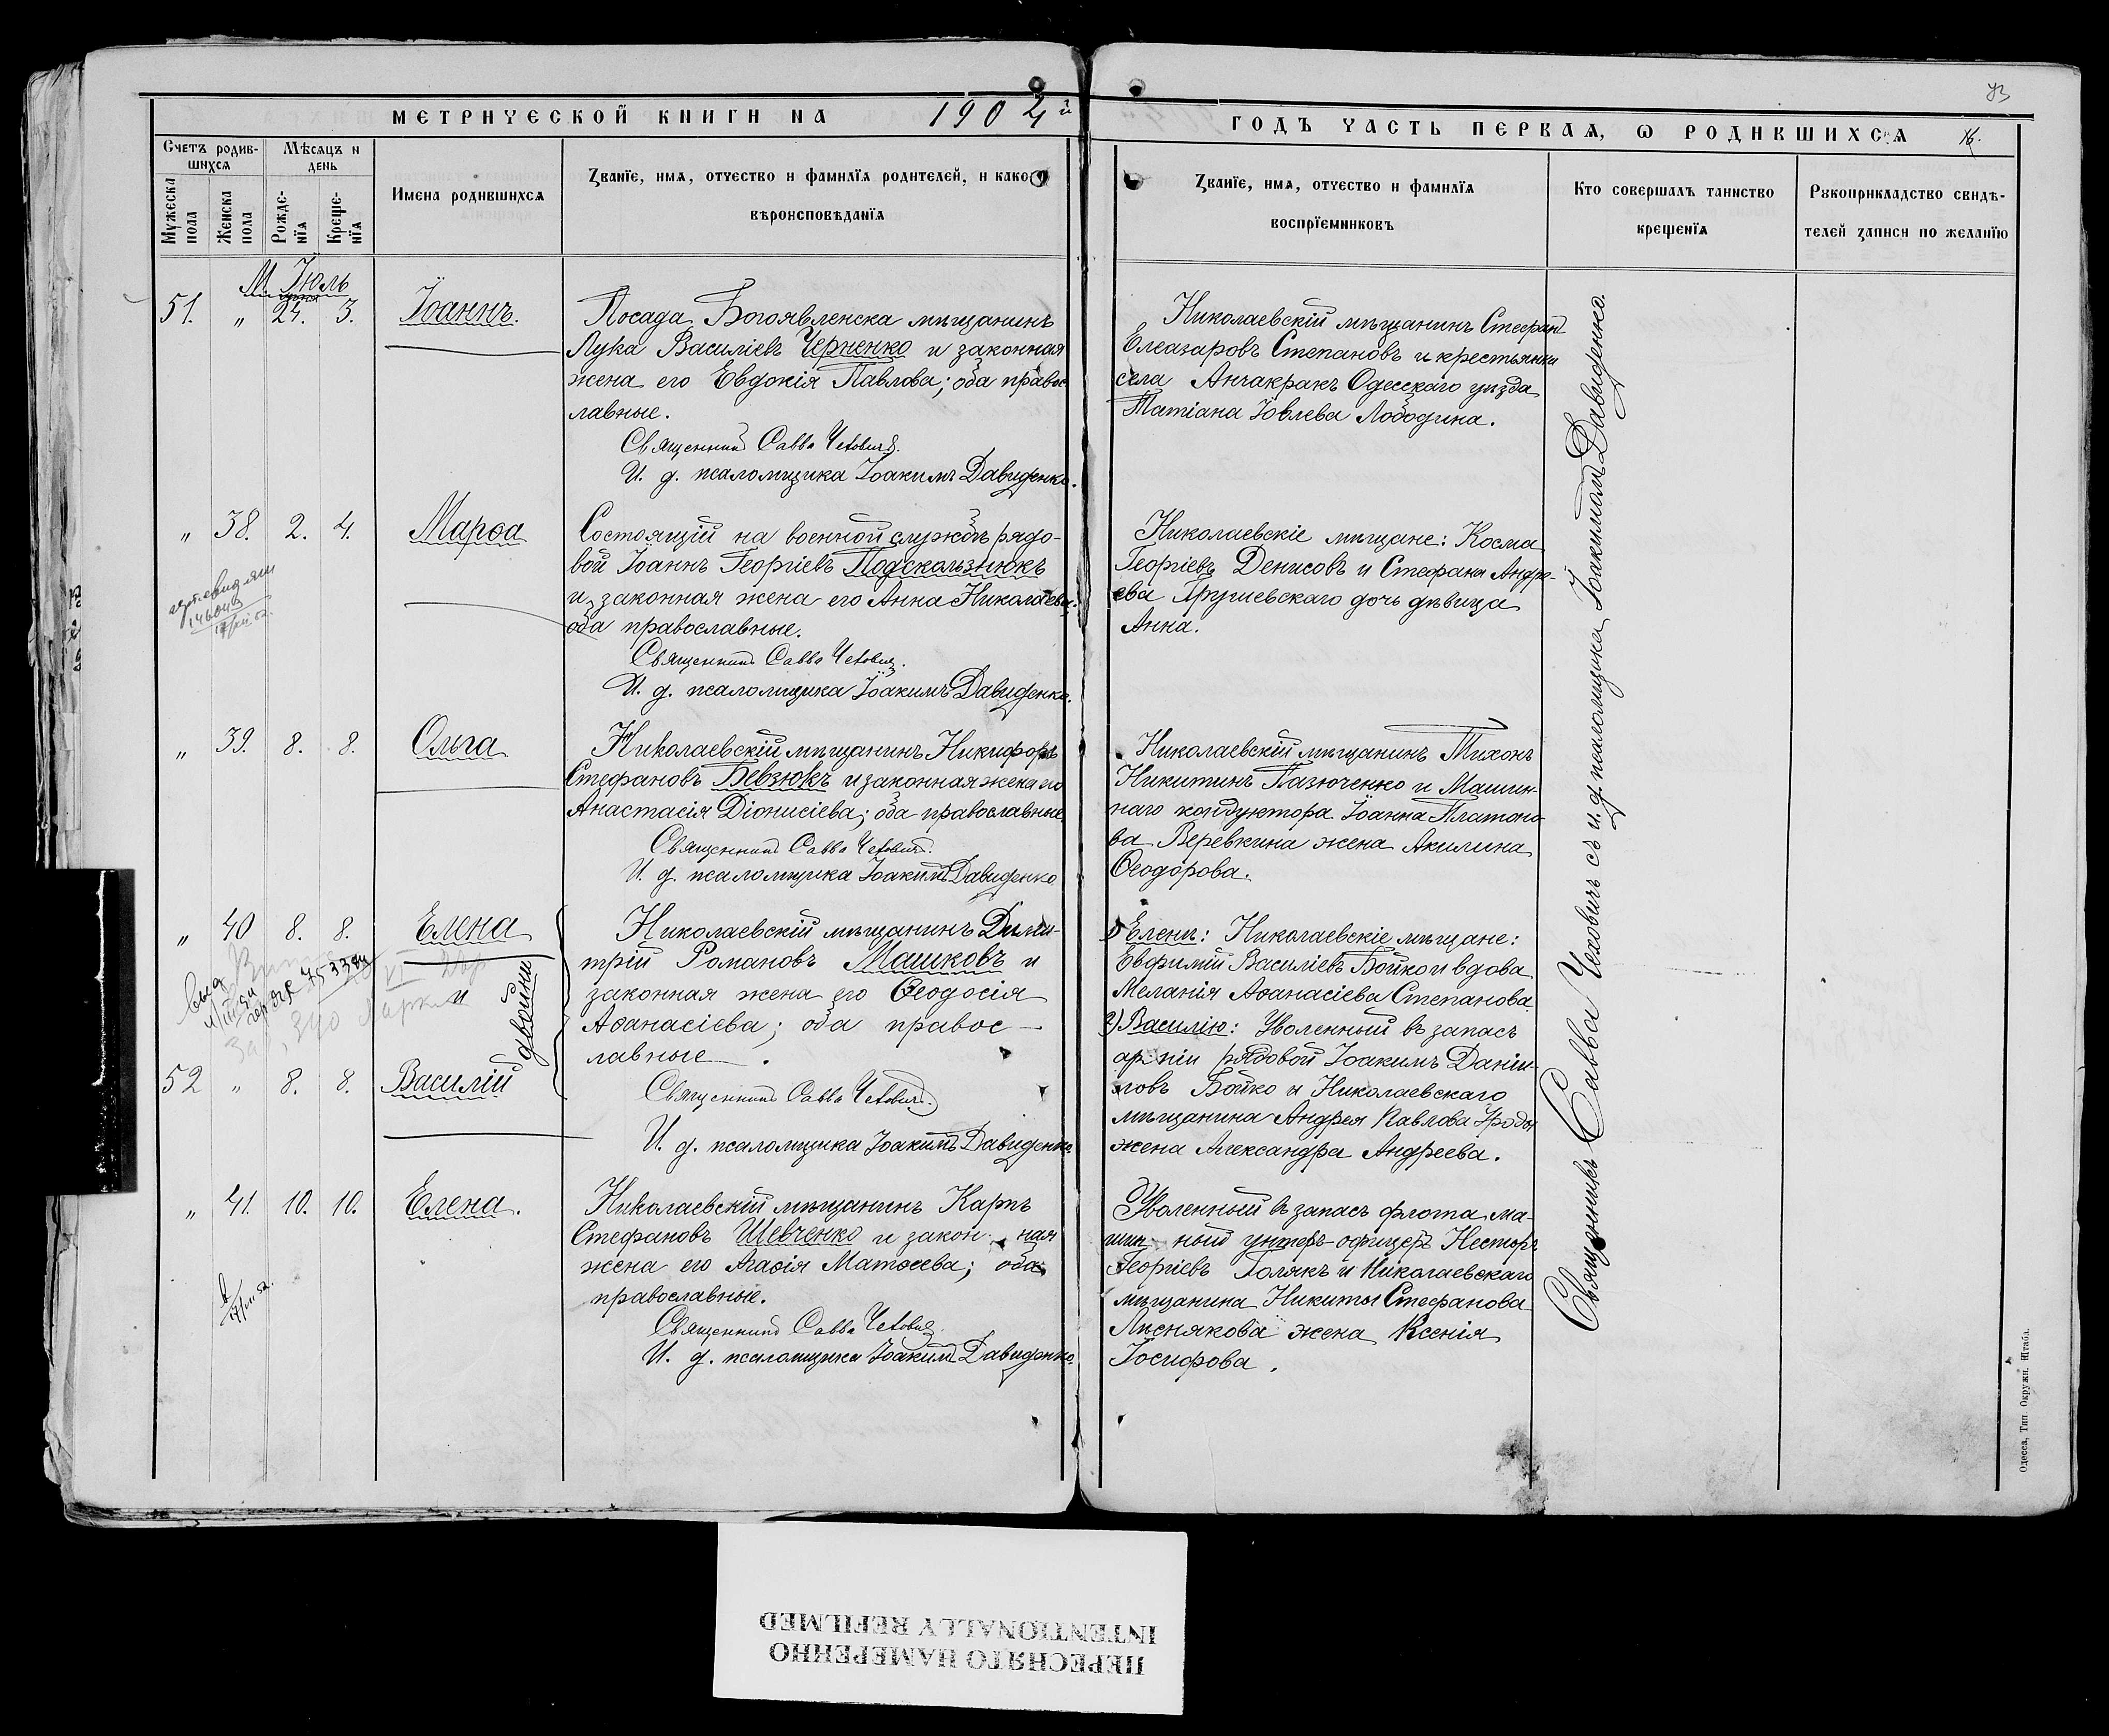 МЕТРИЧЕСКОЙ КНИГИ НА 1904й
Счетъ родив-
шихся
Мѣсяцъ и
день
Мужеска
пола
Женска
пола
Рожде-
нїя
Креще-
нїя
Имена родившихся
Званїе, имя, отчество и фамилїя родителей, и какого
вѣроисповѣданїя
М. Іюль
51. " 24. 3. Іоаннъ.
Посада Богоявленска мѣщанинъ
Лука Василіевъ Черненко и законная
жена его Евдокія Павлова; оба правос
лавные.
Священникъ Савва Чеховичъ.
И. д. псаломщика Іоакимъ Давиденко.
" 38. 2. 4. Марѳа
Состоящій на военной службѣ рядо-
вой Іоаннъ Георгіевъ Подскользнюкъ
и законная жена его Анна Николаева;
оба православные.
Священникъ Савва Чеховичъ.
И. д. псаломщика Іоакимъ Давиденко.
" 39. 8. 8. Ольга
Николаевскій мѣщанинъ Никифоръ
Стефановъ Бевзюкъ и законная жена его
Анастасія Діонисіева; оба православные.
Священникъ Савва Чеховичъ.
И. д. псаломщика Іоакимъ Давиденко
" 40 8. 8. Елена
и
двойни
52 " 8. 8. Василій
Николаевскій мѣщанинъ Дими-
трій Романовъ Машковъ и
законная жена его Ѳеодосія
Аѳанасіева; оба правос-
лавные.
Священникъ Савва Чеховичъ.
И. д. псаломщика Іоакимъ Давиденко.
" 41. 10. 10. Елена.
Николаевскій мѣщанинъ Карпъ
Стефановъ Шевченко и закон ная
жена его Агаѳія Матѳеева; оба
православные.
Священникъ Савва Чеховичъ
И. д. псаломщика Іоакимъ Давиденко.
ГОДЪ ЧАСТЬ ПЕРВАЯ, Ѡ РОДИВШИХСЯ 16.
Званїе, имя, отчество и фамилїя
воспрїемниковъ
Кто совершалъ таинство
крещенїя
Рукоприкладство свидѣ-
телей записи по желанїю
Николаевскій мѣщанинъ Стефанъ
Елеазаровъ Степановъ и крестьянки
села Анчакракъ Одесскаго уѣзда
Татіана Іовлева Лободина.
Николаевскіе мѣщане: Косма
Георгіевъ Денисовъ и Стефана Андре-
ева Грушевскаго дочь дѣвица
Анна.
Николаевскій мѣщанинъ Тихонъ
Никитинъ Пазюченко и Машин-
наго кондуктора Іоанна Платоно-
ва Веревкина жена Акилина
Ѳеодорова.
1) Еленѣ: Николаевскіе мѣщане:
Евфимій Василіевъ Бойко и вдова
Меланія Аѳанасіева Степанова
2) Василію: Уволенный въ запасъ
арміи рядовой Іоакимъ Даніи-
ловъ Бойко и Николаевскаго
мѣщанина Андрея Павлова
жена Александра Андреева.
Уволенный въ запасъ флота ма-
шин ный унтеръ-офицеръ Несторъ
Георгіевъ Голякъ и Николаевскаго
мѣщанина Никиты Стефанова
Лиснякова жена Ксенія
Іосифова.
Священникъ Савва Чеховичъ съ и. д. псаломщика Іоакимомъ Давиденко.
Одесса, Тип. Окружн. Штаба.
ПЕРЕСНЯТО НАМЕРЕННО
INTENTIONALLY REFILMED